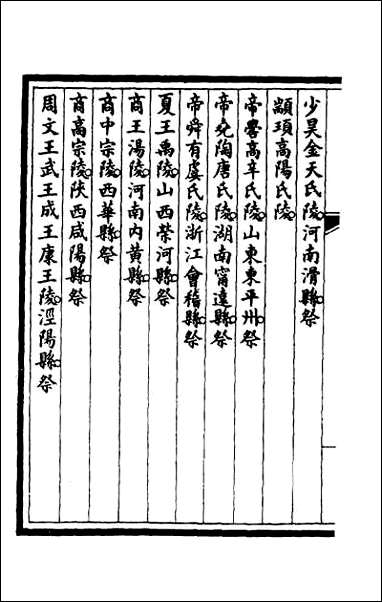 少昊金天氏陵河南滑縣祭
顓頊高陽氏陵
帝嚳高辛氏陵山東東平州祭
帝堯陶唐氏陵湖南甯遠縣祭
帝舜有虞氏陵浙江會稽縣祭
夏王禹陵山西榮河縣祭
商王湯陵河南内黄縣祭
商中宗陵西華縣祭
商高宗陵陜西咸陽縣祭
周文王武王成王康王陵涇陽縣祭